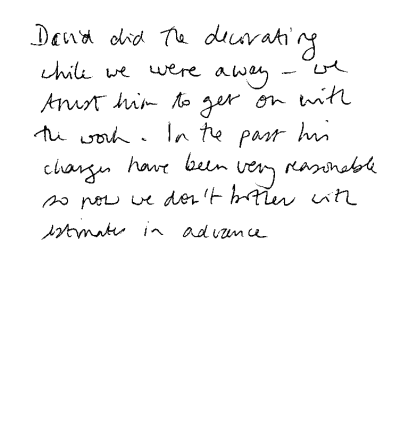 David did the decorating
while we were away - we
trust him to get on with
the work. In the past his
charges have been very reasonable
so now we don't bother with
estimates in advance